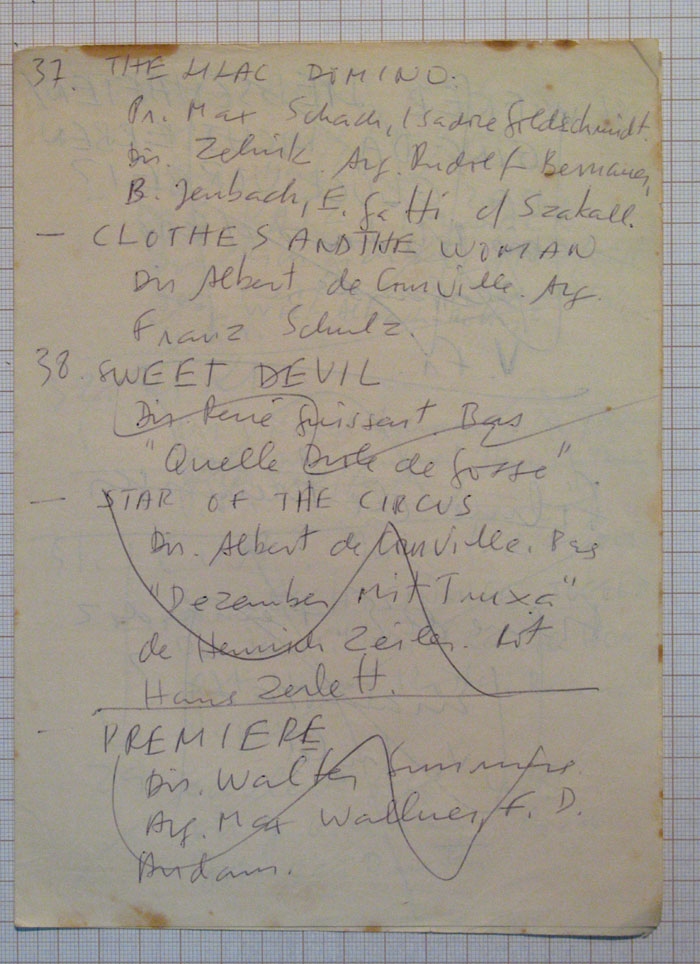 37. THE LILAC DOMINO.
Pr. Max Schach, Isadore Goldschmidt.
Dir. Zelnik. Arg. Rudolf Bernauer,
B. Jenbach, E. Gatti d Szakall.
— CLOTHES AND THE WOMAN
Dir Albert de Courville. Arg.
Franz Schulz.
38. SWEET DEVIL
Dir. René Guissart. Bas
"Quelle Drole de Gosse"
— STAR OF THE CIRCUS
Dir. Albert de Courville. Bas
"Dezember mit Truxa"
de Heinrich Zeiler. Rot
Hans Zerlett.
- PREMIERE
Dir. Walter Summers.
Arg. Max Wallner, F. D.
Andam.